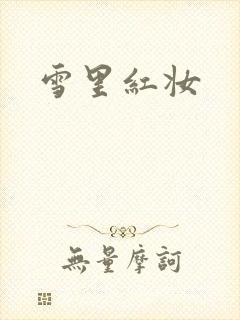 雪里紅妆
無量摩訶